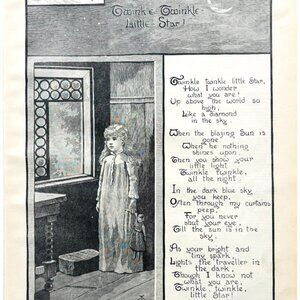 Twinkle Twinkle
Little Star!
Twinkle twinkle little Star,
How I wonder
what you are!
Up above the world so
high,
Like a diamond
in the sky.
When the blazing Sun is
gone
When he nothing
shines upon
Then you show your
little light
Twinkle, twinkle,
all the night.
In the dark blue sky
you keep,
Often through my curtains
peep,
For you never
shut your eye,
Till the sun is in the
sky.
As your bright and
tiny spark,
Lights the traveller in
the dark,
Though I know not
what you are,
Twinkle, twinkle,
little Star!